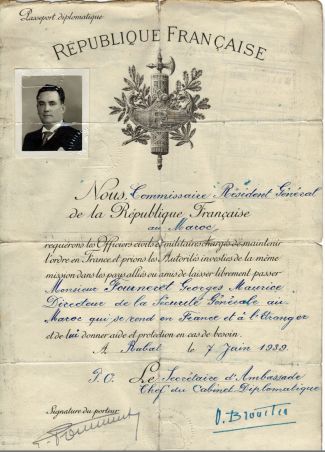 Passeport diplomatique
RÉPUBLIQUE FRANÇAISE
Nous, Commissaire Résident Général
de la République Française
au Maroc,
requérons les Officiers civils et militaires chargés de maintenir
l'ordre en France et prions les Autorités investies de la même
mission dans les pays alliés ou amis de laisser librement passer
Monsieur Georges Maurice
Directeur de la Sécurité Générale au
Maroc qui se rend en France et à l'Etranger
et de lui donner aide et protection en cas de besoin.
A Rabat le 7 Juin 1939
P.O. Le Secrétaire d'Ambassade
Chef du Cabinet Diplomatique
Signature du porteur